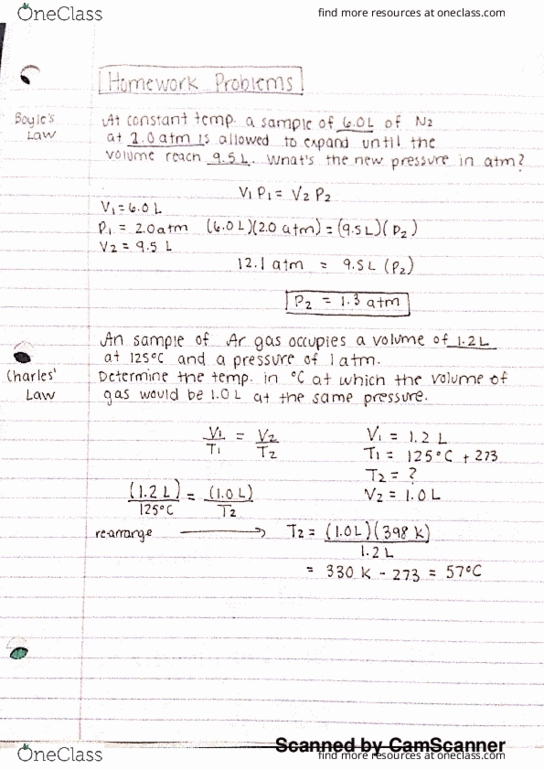 OneClass
find more resources at oneclass.com
Homework Problems
Boyle's
Law
At constant temp. a sample of 6.0L of N2
at 2.0 atm is allowed to expand until the
volume reach 9.5 L. What's the new pressure in atm?
V1 P1 = V2 P2
V1 = 6.0 L
P1 = 2.0 atm (6.0 L)(2.0 atm) = (9.5 L)(P2)
V2 = 9.5 L
12.1 atm = 9.5 L (P2)
P2 = 1.3 atm
An sample of Ar gas occupies a volume of 1.2 L
at 125°C and a pressure of 1 atm.
Charles'
Law
Determine the temp. in °C at which the volume of
gas would be 1.0 L at the same pressure.
V1/T1 = V2/T2
V1 = 1.2 L
T1 = 125°C + 273
T2 = ?
V2 = 1.0 L
(1.2 L)/125°C = (1.0 L)/T2
rearrange → T2 = (1.0 L)(398 K)/1.2 L
= 330 K - 273 = 57°C
Scanned by CamScanner
OneClass
find more resources at oneclass.com